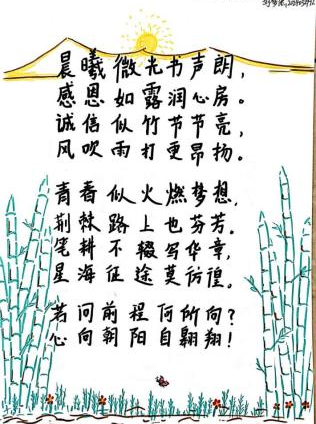 晨曦微光书声朗，
感恩如露润心房。
诚信似竹节节亮，
风吹雨打更昂扬。
青春似火燃梦想，
荆棘路上也芬芳。
笔耕不辍写华章，
星海征途莫彷徨。
若问前程何所向？
心向朝阳自翱翔！